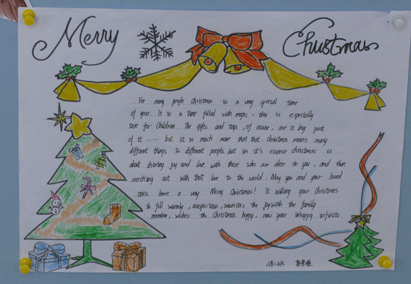 Merry Christmas
... For many people Christmas is a very special time
of year. It is a time filled with magic - this is especially
true for children. The gifts and toys, of course, are a big part
of it ...... but it is much more than that Christmas means many
different things to different people but in it's essence christmas is
about sharing joy and love with those who are dear to you, and then
reaching out with that love to the world. May you and your loved
ones have a very Merry Christmas! It Christmas
to fill the joy with the family
wishes the Christmas happy, new year